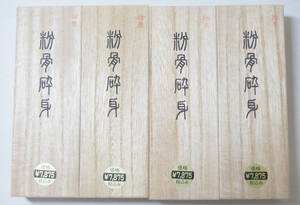 粉骨砕身
価格
¥7,875
税込み
粉骨砕身
価格
¥7,875
税込み
粉骨砕身
価格
¥7,875
税込み
粉骨砕身
価格
¥7,875
税込み